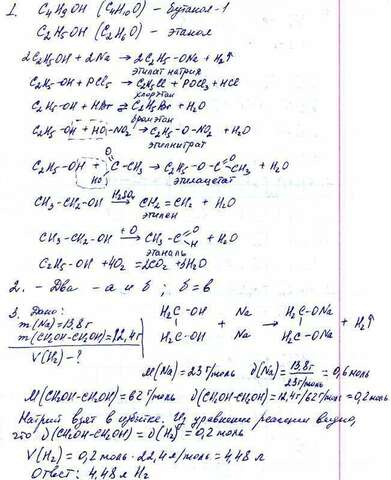 1. C₄H₉OH (C₄H₁₀O) – бутанол-1
C₂H₅OH (C₂H₆O) – этанол
2C₂H₅OH + 2Na → 2C₂H₅-ONa + H₂↑
этилат натрия
C₂H₅-OH + PCl₅ → C₂H₅Cl + POCl₃ + HCl
хлорэтан
C₂H₅-OH + HBr ⇄ C₂H₅Br + H₂O
бромэтан
C₂H₅-OH + HO-NO₂ → C₂H₅-O-NO₂ + H₂O
этилнитрат
C₂H₅-OH + HO-C(=O)-CH₃ → C₂H₅-O-C(=O)-CH₃ + H₂O
этилацетат
CH₃-CH₂-OH →(H₂SO₄) CH₂=CH₂ + H₂O
этилен
CH₃-CH₂-OH →(+O) CH₃-C(=O)-H + H₂O
этаналь
C₂H₅-OH + 4O₂ = 2CO₂ + 3H₂O
2. – Два – а и б ; б = в
3. Дано:
m(Na) = 13,8г
m(CH₂OH-CH₂OH) = 12,4г
V(H₂) – ?
H₂C-OH Na H₂C-ONa
| + → | + H₂↑
H₂C-OH Na H₂C-ONa
M(Na) = 23 г/моль ν(Na) = 13,8г / 23г/моль = 0,6 моль
M(CH₂OH-CH₂OH) = 62 г/моль ν(CH₂OH-CH₂OH) = 12,4г/62г/моль = 0,2 моль
Натрий взят в избытке. Из уравнения реакции видно,
что ν(CH₂OH-CH₂OH) = ν(H₂) = 0,2 моль
V(H₂) = 0,2 моль · 22,4 л/моль = 4,48 л
Ответ: 4,48 л H₂